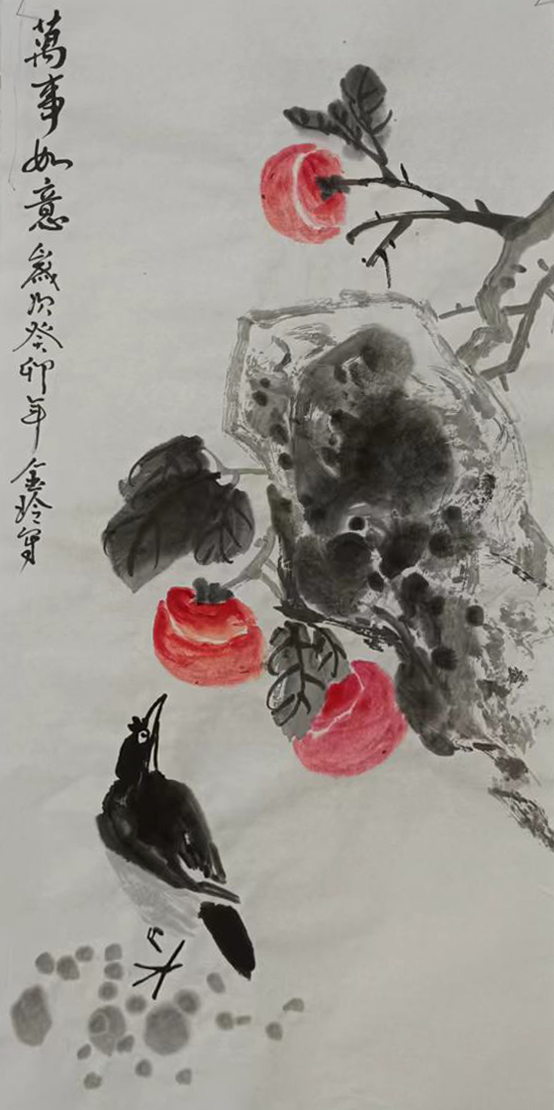 萬事如意歲次癸卯年金玲写